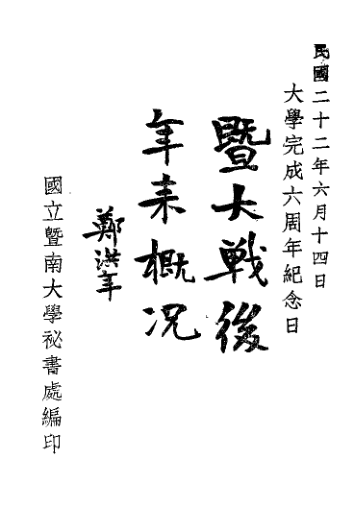 民國二十二年六月十四日
大學完成六周年紀念日
暨大戰後
年来概况
鄭洪年
國立暨南大學祕書處編印